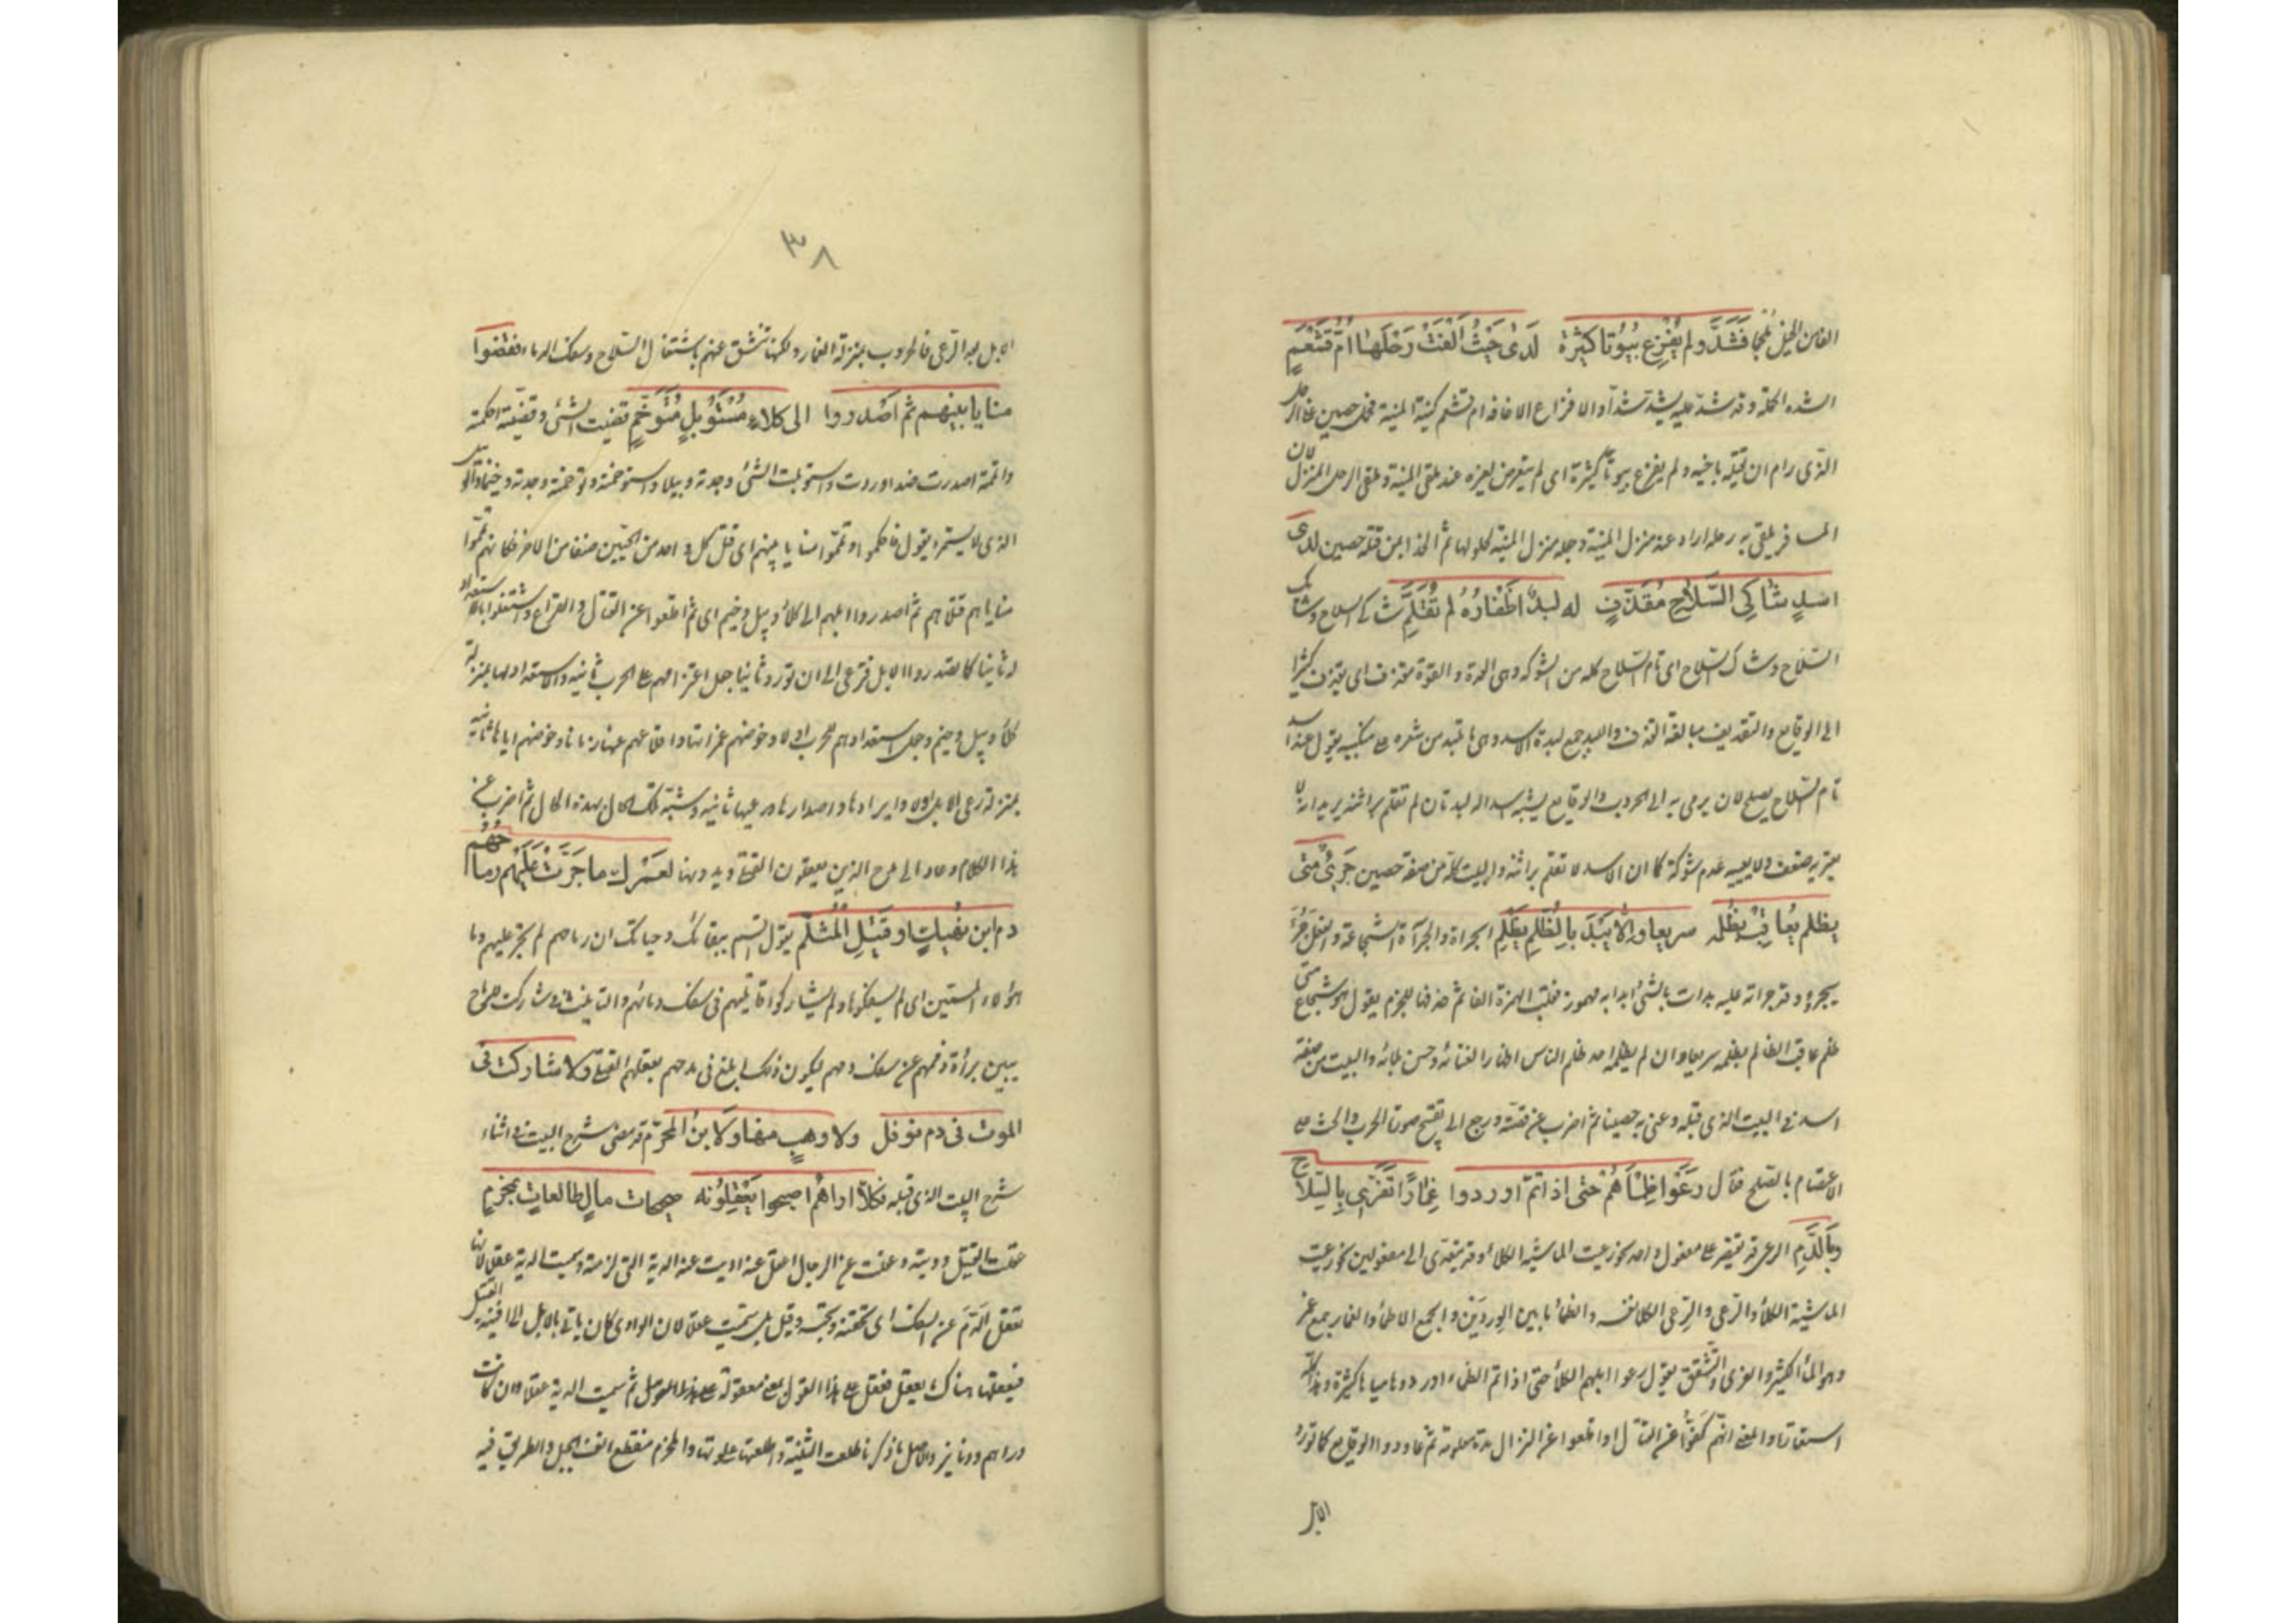 الفاس الخيل ملجما فَشَدَّ ولم يُفْزِع بُيُوتًا كثيرة لَدَى حَيْثُ أَلْقَتْ رَحْلَهَا أُمُّ قَشْعَمِ
الشده الحملة وقد شد عليه يشد شدا والافزاع الاخافة ام قشعم كنية المنية فحمل حصين على الرجل
الذى رام ان يقتله باخيه ولم يفزع بيوتا كثيرة اى لم يتعرض لغيره عند ملقى المنية وملقى الرحل المنزل لان
المسافر يلقى به رحله اراد عند منزل المنية وجعله منزل المنية لحلولها ثم الذا من قتله حصين لدى
اسد شاكى السلاح مُقَذَّفٍ له لبد اظفاره لم تُقَلَّمِ شاكى السلاح وشايك
السلاح وشاك السلاح اى تام السلاح كله من الشوكة وهى العدة والقوة مقذف اى يقذف كثيرا
الى الوقايع والتقذيف مبالغة القذف واللبد جمع لبدة الاسد وهى ما تلبد من شعره على منكبيه يقول عند اسد
تام السلاح يصلح لان يرمى به الى الحروب والوقايع يشبه اسدا له لبدتان لم تقلم براثنه يريد انه لا
يعتريه ضعف ولا يعيبه عدم شوكة كما ان الاسد لا تقلم براثنه والبيت كله من صفة حصين جَرِىءٍ متى
يظلم يُعَاقِبْ بظلمه سريعا وإلا يُبْدَ بالظلم يَظْلِمِ الجراة والجرآءة الشجاعة والفعل جرؤ
يجرؤ وقد جراته عليه بدات بالشئ ابدا به مهموز فقلب الهمزة الفا ثم حذفها للجزم يقول هو شجاع متى
ظلم عاقب الظالم بظلمه سريعا وان لم يظلمه احد ظلم الناس اظهارا لغنائه وحسن بلائه والبيت من صفة
اسد فى البيت الذى قبله وعنى به حصينا ثم اضرب عن قصته ورجع الى تقبيح صورة الحرب والحث على
الاعتصام بالصلح فقال رَعَوْا ظِمْأَهُمْ حتى اذا تم اوردوا غِمَارًا تَفَرَّى بالسلاح
وبالدَّمِ الرعى قد يقتصر على مفعول واحد نحو رعيت الماشية الكلأ وقد يتعدى الى مفعولين نحو رعيت
الماشية الكلأ والرعى والرِعى الكلا نفسه والظمأ ما بين الوردين والجمع الاظماء والغمار جمع غمر
وهو الماء الكثير والتفرى التشقق يقول رعوا ابلهم الكلأ حتى اذا تم الظمء اوردوها مياها كثيرة وهذا كله
استعارة والمعنى انهم كَفُّوا عن القتال واقلعوا عن النزال مدة معلومة ثم عاودوا الوقايع كما تورد
الابل
٣٨
الابل بعد الرعى فالحروب بمنزلة الغمار ولكنها تنشق عنهم باستعمال السلاح وسفك الدماء فقضوا
منايا بينهم ثم اصدروا الى كلاءٍ مُسْتَوْبِلٍ مُتَوَخَّمِ قضيت الشئ وقضيته احكمته
واتممته اصدرت ضد اوردت واستوبلت الشئ وجدته وبيلا واستوخمته وتوخمته وجدته وخيما والوبيل
الذى لا يستمرء يقول فاحكموا وتمموا منايا بينهم اى قتل كل واحد من الحيين صنفا من الاخر فكانهم تمموا
منايا هم قتلاهم ثم اصدروا ابلهم الى كلأ وبيل وخيم اى ثم اقلعوا عن القتال والقراع واشتغلوا بالاستعداد
له ثانيا كما تصدروا الابل فترعى الى ان تورد ثانيا جعل اعتزامهم على الحرب ثانية والاستعداد لها بمنزلة
كلأ وبيل وخيم وجعل استعدادهم للحرب اولا وخوضهم غمراتها واقلاعهم عنها زمانا وخوضهم اياها ثانية
بمنزلة رعى الابل اولا وايرادها واصدارها ورعيها ثانية وشبه تلك الحال بهذه الحال ثم اضرب عن
هذا الكلام وعاد الى مدح الذين يعقون القتلى ويدونها لعَمْرُك ما جَرَّتْ عَلَيْهِم رماحُهُم
دم ابن نهيك او قتيل المثلم يقول اقسم ببقائك وحياتك ان رماحهم لم تجر عليهم دما
هؤلاء المسمين اى لم يسفكوها ولم يشاركوا قاتليهم فى سفك دمائهم والتانيث فى شاركت للرماح
يبين براءة ذممهم عن سفك دمهم ليكون ذلك ابلغ فى مدحهم بعقلهم القتلى ولا شاركت فى
الموت فى دم نوفل ولا وهب منها ولا ابن المخزم قد مضى شرح البيت فى اثناء
شرح البيت الذى قبله فكلا اراهم اصبحوا يَعْقِلُونَه صحيحات مال طالعات بمخرم
عقلت القتيل وديته وعقلت عن الرجل اعقل عنه اديت عنه الدية التى لزمته وسميت الدية عقلا لانها
تعقل الدم عن السفك اى تحقنه وتحبسه وقيل بل سميت عقلا لان الوادى كان ياتى بالابل الى افنية القتيل
فيعقلها هناك بعقلها فعقل على هذا القول بمعنى معقولة ثم سميت الدية عقلا وان كانت
دراهم ودنانير والاصل ما ذكرنا طلعت الثنية واطلعتها علوتها والمخرم منقطع انف الجبل والطريق فيه